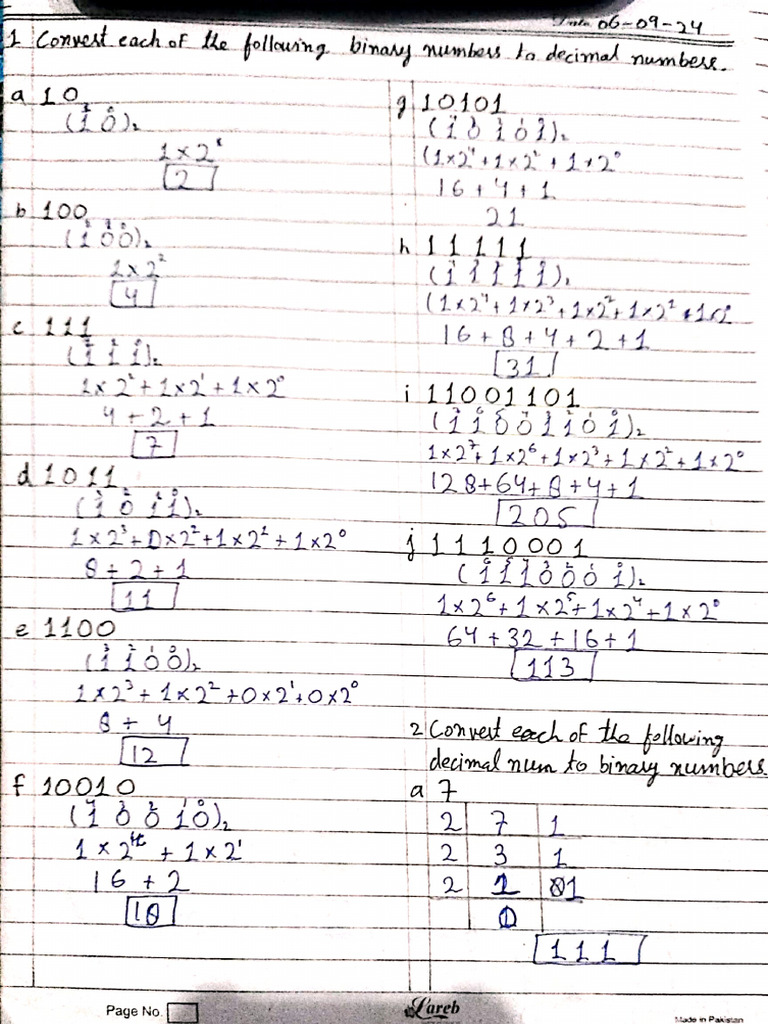 Date 06-09-24
1 Convert each of the following binary numbers to decimal numbers.
a 10
(1¹ 0⁰)₂
1×2¹
2
b 100
(1² 0¹ 0⁰)₂
1×2²
4
c 111
(1² 1¹ 1⁰)₂
1×2² + 1×2¹ + 1×2⁰
4 + 2 + 1
7
d 1011
(1³ 0² 1¹ 1⁰)₂
1×2³ + 0×2² + 1×2¹ + 1×2⁰
8 + 2 + 1
11
e 1100
(1³ 1² 0¹ 0⁰)₂
1×2³ + 1×2² + 0×2¹ + 0×2⁰
8 + 4
12
f 10010
(1⁴ 0³ 0² 1¹ 0⁰)₂
1×2⁴ + 1×2¹
16 + 2
18
g 10101
(1⁴ 0³ 1² 0¹ 1⁰)₂
(1×2⁴ + 1×2² + 1×2⁰
16 + 4 + 1
21
h 11111
(1⁴ 1³ 1² 1¹ 1⁰)₂
(1×2⁴ + 1×2³ + 1×2² + 1×2¹ + 1×2⁰
16 + 8 + 4 + 2 + 1
31
i 11001101
(1⁷ 1⁶ 0⁵ 0⁴ 1³ 1² 0¹ 1⁰)₂
1×2⁷ + 1×2⁶ + 1×2³ + 1×2² + 1×2⁰
128 + 64 + 8 + 4 + 1
205
j 1110001
(1⁶ 1⁵ 1⁴ 0³ 0² 0¹ 1⁰)₂
1×2⁶ + 1×2⁵ + 1×2⁴ + 1×2⁰
64 + 32 + 16 + 1
113
2 Convert each of the following
decimal num to binary numbers.
a 7
2 7 1
2 3 1
2 1 1
0
111
Page No.
Lareb
Made in Pakistan